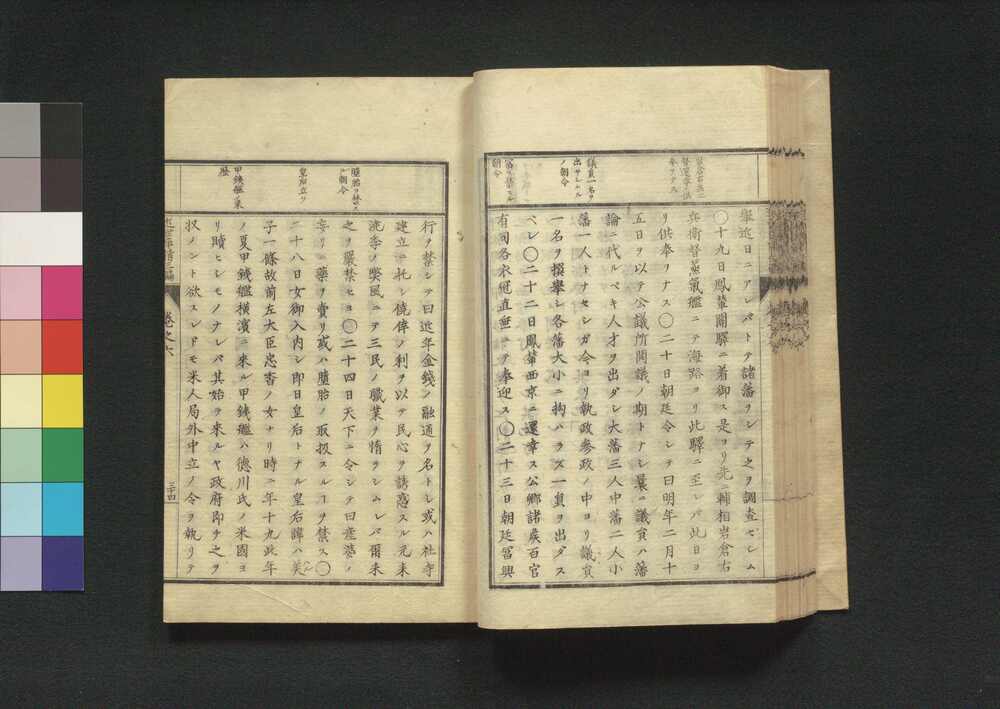 擧近日ニアレバトテ諸藩ヲシテ之ヲ調査セシム
〇十九日鳳輦關驛ニ着御ス是ヨリ先ニ輔相岩倉右
兵衛督蒸氣艦ニテ海路ヨリ此驛ニ至レバ此日ヨ
リ供奉ヲナス〇二十日朝廷令シテ曰明年二月十
五日ヲ以テ公議所開議ノ期トナシ曩ニ議員ハ藩
論ニ代ルベキ人才ヲ出ダシ大藩三人中藩二人小
藩一人トナセシガ今ヨリ執政參政ノ中ヨリ議員
一名ヲ撰擧シ各藩大小ニ拘ハラズ一員ヲ出ダス
ベシ〇二十二日鳳輦西京ニ還幸ス公卿諸侯百官
有司各衣冠直垂ニテ奉迎ス〇二十三日朝廷冨興
議員一名ヲ
出サシムル
ノ朝令
冨興ヲ禁ズル
朝令
行ヲ禁シテ曰近年金錢ノ融通ヲ名トシ或ハ社寺
建立ニ托シ僥倖ノ利ヲ以テ民心ヲ誘惑スル元來
澆季ノ弊風ニテ三民ノ職業ヲ惰ラシムレバ爾来
之ヲ嚴禁セヨ〇二十四日天下ニ令シテ曰産婆ノ
妄リニ藥ヲ賣リ或ハ墮胎ノ取扱スルヿヲ禁ス〇
二十八日女御入内シ即日皇后トナル皇后諱ハ美
子一條故前左大臣忠香ノ女ナリ時ニ年十九此年
ノ夏甲鐵艦横濱ニ來ル甲鐵艦ハ德川氏ノ米國ヨ
リ贖ヒシモノナレバ其始ヲ來ルヤ政府即チ之ヲ
収ノント欲スレドモ米人局外中立ノ令ヲ執リテ
墮胎ヲ禁ス
ル朝令
皇后立ツ
甲鐵艦ノ來
歴
卷之六
三十四